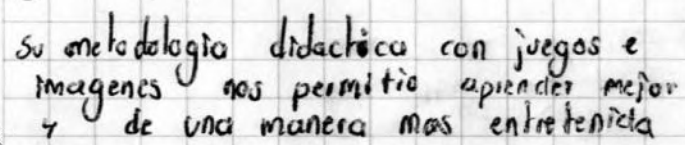 Su metodologia didactica con juegos e
imagenes nos permitio aprender mejor
y de una manera mas entretenida